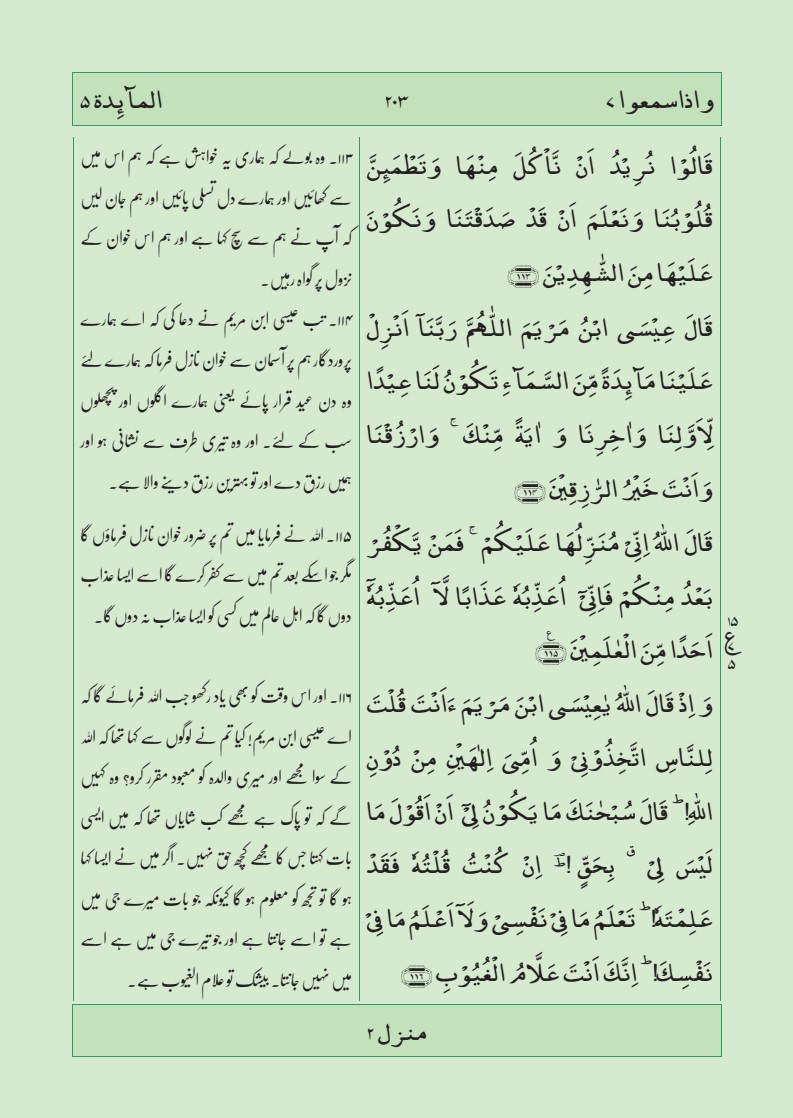 واذاسمعوا ۷
۲۰۳
المآئِدة ۵
قَالُوْا نُرِيْدُ اَنْ نَّاْكُلَ مِنْهَا وَتَطْمَىِٕنَّ
قُلُوْبُنَا وَنَعْلَمَ اَنْ قَدْ صَدَقْتَنَا وَنَكُوْنَ
عَلَيْهَا مِنَ الشّٰهِدِيْنَ ﴿۱۱۳﴾
قَالَ عِيْسَى ابْنُ مَرْيَمَ اللّٰهُمَّ رَبَّنَاۤ اَنْزِلْ
عَلَيْنَا مَآىِٕدَةً مِّنَ السَّمَآءِ تَكُوْنُ لَنَا عِيْدًا
لِّاَوَّلِنَا وَاٰخِرِنَا وَ اٰيَةً مِّنْكَ ۚ وَارْزُقْنَا
وَاَنْتَ خَيْرُ الرّٰزِقِيْنَ ﴿۱۱۴﴾
قَالَ اللّٰهُ اِنِّىْ مُنَزِّلُهَا عَلَيْكُمْ ۚ فَمَنْ يَّكْفُرْ
بَعْدُ مِنْكُمْ فَاِنِّىْۤ اُعَذِّبُهٗ عَذَابًا لَّاۤ اُعَذِّبُهٗۤ
اَحَدًا مِّنَ الْعٰلَمِيْنَ ﴿۱۱۵﴾
وَ اِذْ قَالَ اللّٰهُ يٰعِيْسَى ابْنَ مَرْيَمَ ءَاَنْتَ قُلْتَ
لِلنَّاسِ اتَّخِذُوْنِىْ وَ اُمِّىَ اِلٰهَيْنِ مِنْ دُوْنِ
اللّٰهِ! ؕ قَالَ سُبْحٰنَكَ مَا يَكُوْنُ لِىْۤ اَنْ اَقُوْلَ مَا
لَيْسَ لِىْ ۗ بِحَقٍّ !ؕ اِنْ كُنْتُ قُلْتُهٗ فَقَدْ
عَلِمْتَهٗ! ؕ تَعْلَمُ مَا فِىْ نَفْسِىْ وَلَاۤ اَعْلَمُ مَا فِىْ
نَفْسِكَ! ؕ اِنَّكَ اَنْتَ عَلَّامُ الْغُيُوْبِ ﴿۱۱۶﴾
۱۱۳۔ وہ بولے کہ ہماری یہ خواہش ہے کہ ہم اس میں
سے کھائیں اور ہمارے دل تسلی پائیں اور ہم جان لیں
کہ آپ نے ہم سے سچ کہا ہے اور ہم اس خوان کے
نزول پر گواہ رہیں۔
۱۱۴۔ تب عیسی ابن مریم نے دعا کی کہ اے ہمارے
پروردگار ہم پر آسمان سے خوان نازل فرما کہ ہمارے لئے
وہ دن عید قرار پائے یعنی ہمارے اگلوں اور پچھلوں
سب کے لئے۔ اور وہ تیری طرف سے نشانی ہو اور
ہمیں رزق دے اور تو بہترین رزق دینے والا ہے۔
۱۱۵۔ اللہ نے فرمایا میں تم پر ضرور خوان نازل فرماؤں گا
مگر جو اسکے بعد تم میں سے کفر کرے گا اسے ایسا عذاب
دوں گا کہ اہل عالم میں کسی کو ایسا عذاب نہ دوں گا۔
۱۱۶۔ اور اس وقت کو بھی یاد رکھو جب اللہ فرمائے گا کہ
اے عیسی ابن مریم! کیا تم نے لوگوں سے کہا تھا کہ اللہ
کے سوا مجھے اور میری والدہ کو معبود مقرر کرو؟ وہ کہیں
گے کہ تو پاک ہے مجھے کب شایاں تھا کہ میں ایسی
بات کہتا جس کا مجھے کچھ حق نہیں۔ اگر میں نے ایسا کہا
ہو گا تو تجھ کو معلوم ہو گا کیونکہ جو بات میرے جی میں
ہے تو اسے جانتا ہے اور جو تیرے جی میں ہے اسے
میں نہیں جانتا۔ بیشک تو علام الغیوب ہے۔
۱۵
ع
۵
منزل ۲